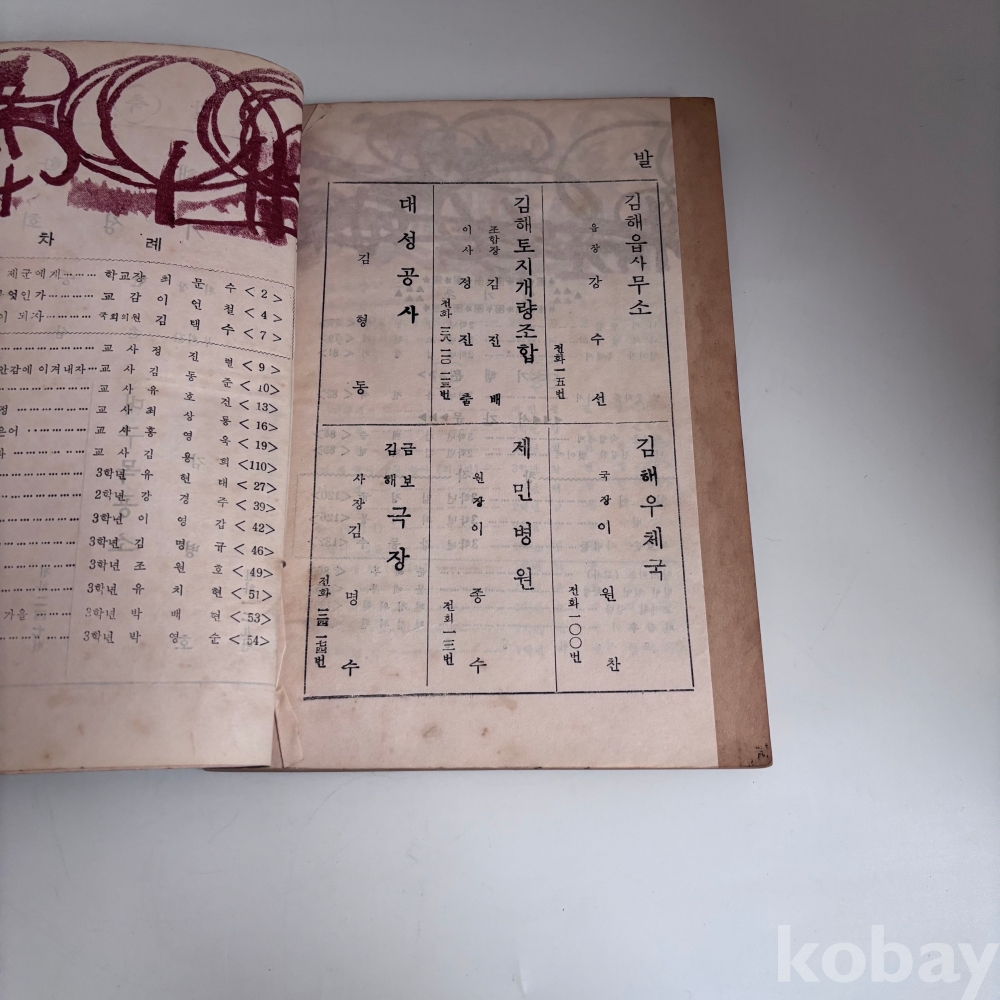 차 례
제군에게 ……… 학교장 최 문 수 < 2 >
엇인가 ……… 교 감 이 언 철 < 4 >
이 되자 ……… 국회의원 김 택 수 < 7 >
……………… 교 사 정 진 렬 < 9 >
안감에 이겨내자 … 교 사 김 동 준 < 10>
……………… 교 사 유 호 건 < 13>
정 ……………… 교 사 최 상 룡 < 16>
은어 ……………… 교 사 홍 영 욱 < 19>
……………… 교 사 김 용 희 <110>
……………… 3학년 유 현 태 < 27>
……………… 2학년 강 경 주 < 39>
……………… 3학년 이 영 갑 < 42>
……………… 3학년 김 명 규 < 46>
……………… 3학년 조 원 호 < 49>
……………… 3학년 유 치 현 < 51>
가을 ……… 3학년 박 배 현 < 53>
……………… 3학년 박 영 순 < 54>
발
김해읍사무소
읍장 강수선
전화 一五번
김해토지개량조합
조합장 김진배
이사 정진출
대성공사
김형동
김해우체국
국장 이원찬
전화 一〇〇번
제민병원
원장 이종수
전화 一三번
김해 금보 극장
사장 김명수
kobay